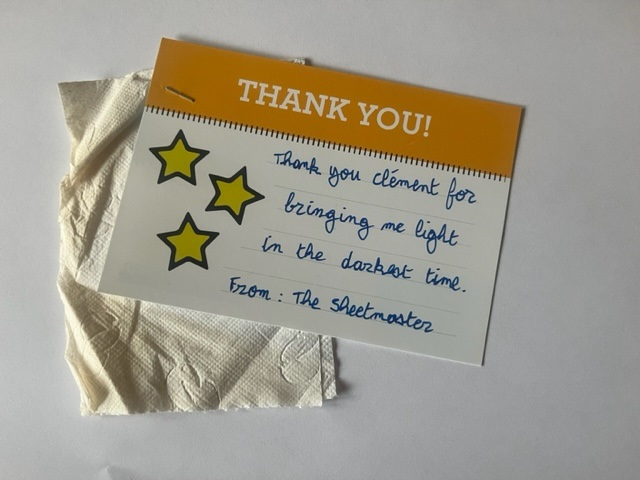 THANK YOU!
Thank you clément for
bringing me light
in the darkest time.
From : The Sheetmaster